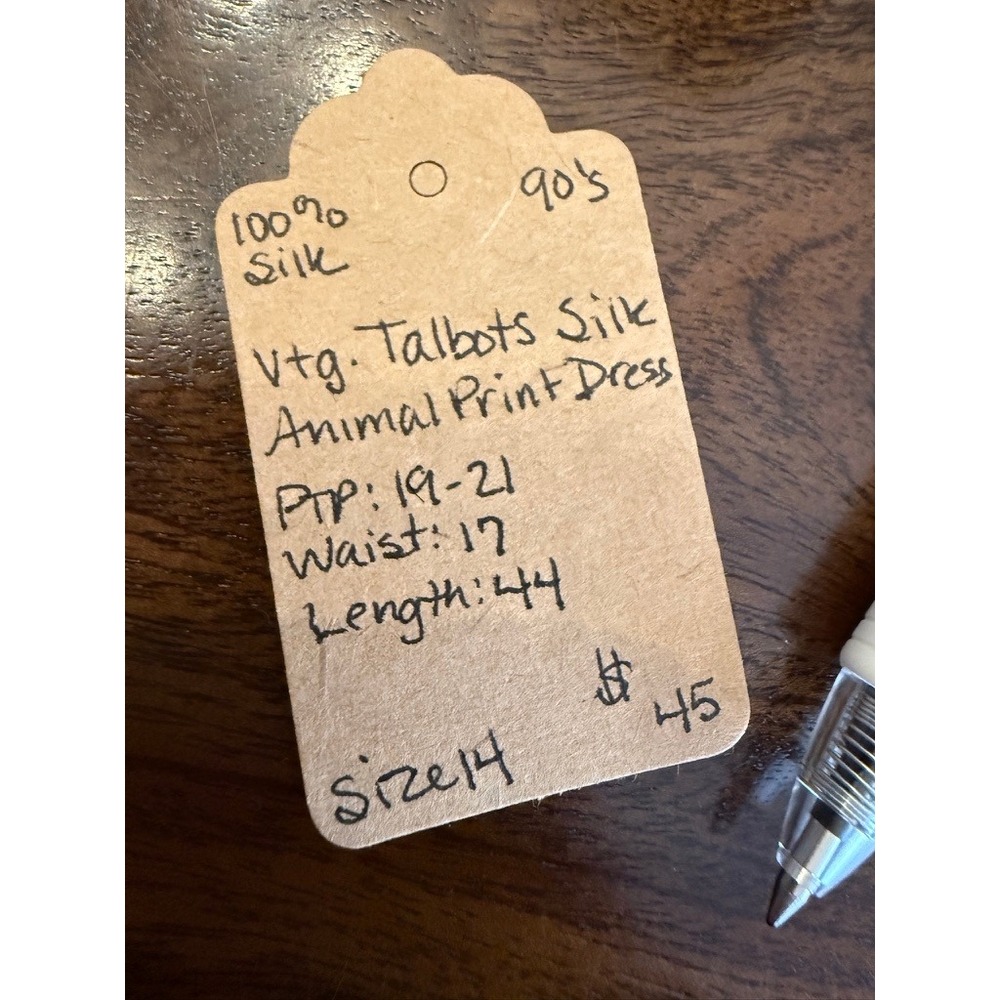 100%
Silk
90's
Vtg. Talbots Silk
Animal Print Dress
PTP: 19-21
Waist: 17
Length: 44
$45
Size 14